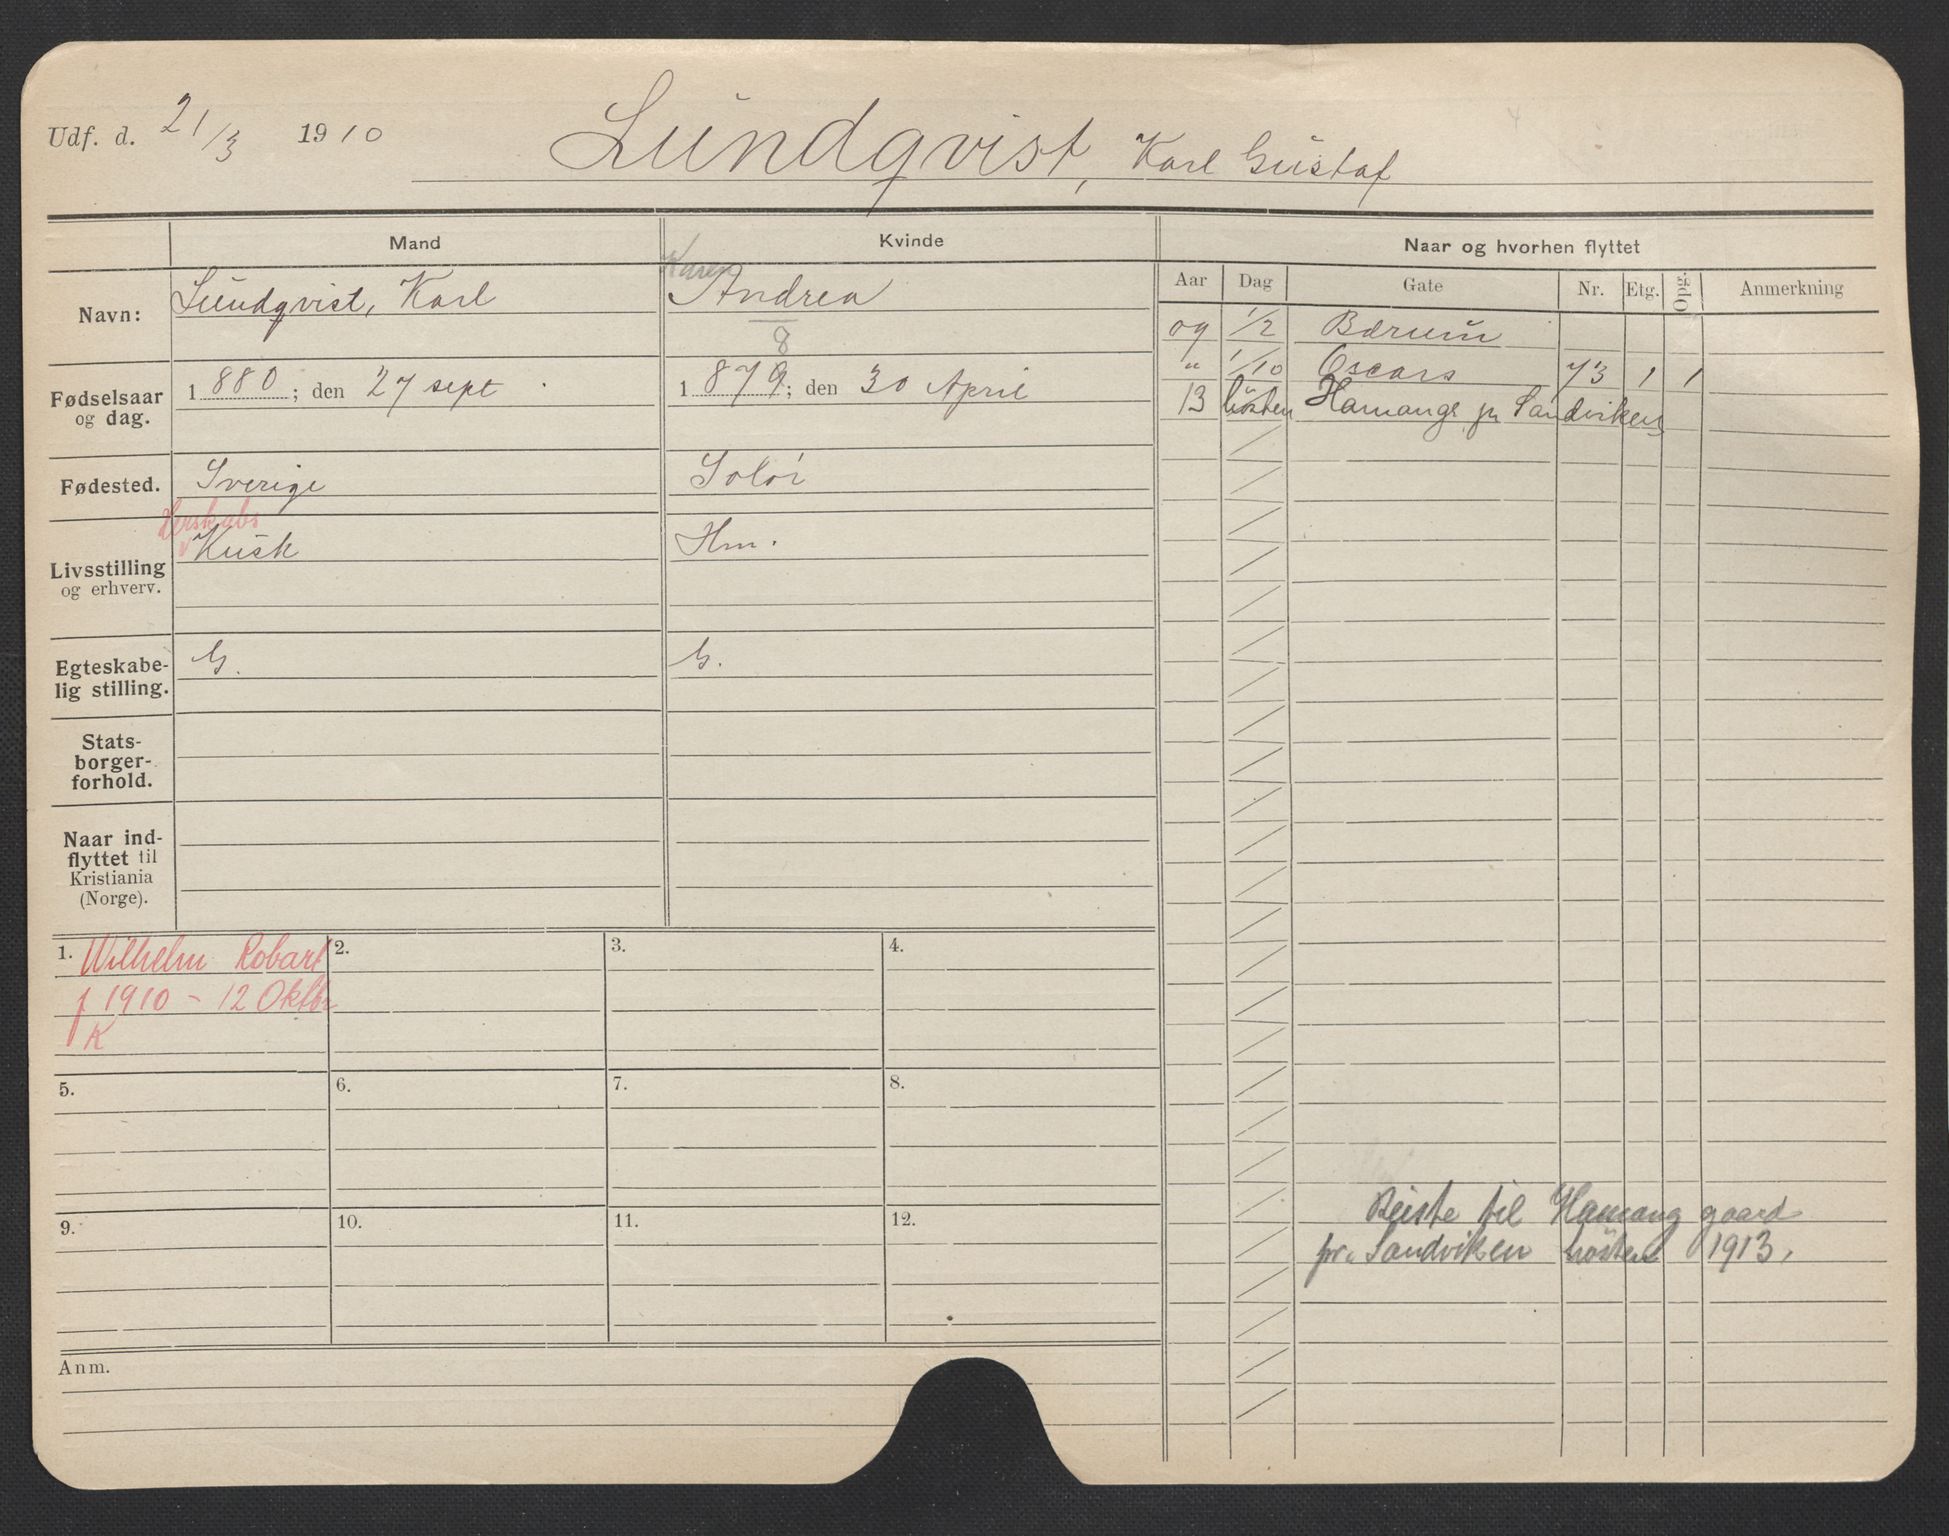 Udf. d. 21/3 1910 Lundqvist, Karl Gustaf
Mand Kvinde Naar og hvorhen flyttet
Aar Dag Gate Nr. Etg. Opg. Anmerkning
Navn: Lundqvist, Karl
Karen
Andrea
8
Fødselsaar og dag. 1 880; den 27 sept
1 879; den 30 April
Fødested. Sverige Solør
Livsstilling og erhverv. Herskabs
Kusk Hm.
Egteskabe-
lig stilling. G. G.
Stats-
borger-
forhold.
Naar ind-
flyttet til
Kristiania
(Norge).
09 1/2 Bærum
" 1/10 Oscars 73 1 1
13 høsten Hamang pr Sandviken
1. Wilhelm Robart
f 1910 - 12 Oktbr
K
2.
3.
4.
5.
6.
7.
8.
9.
10.
11.
12.
Reiste til Hamang gaard
pr. Sandviken høsten 1913.
Anm.